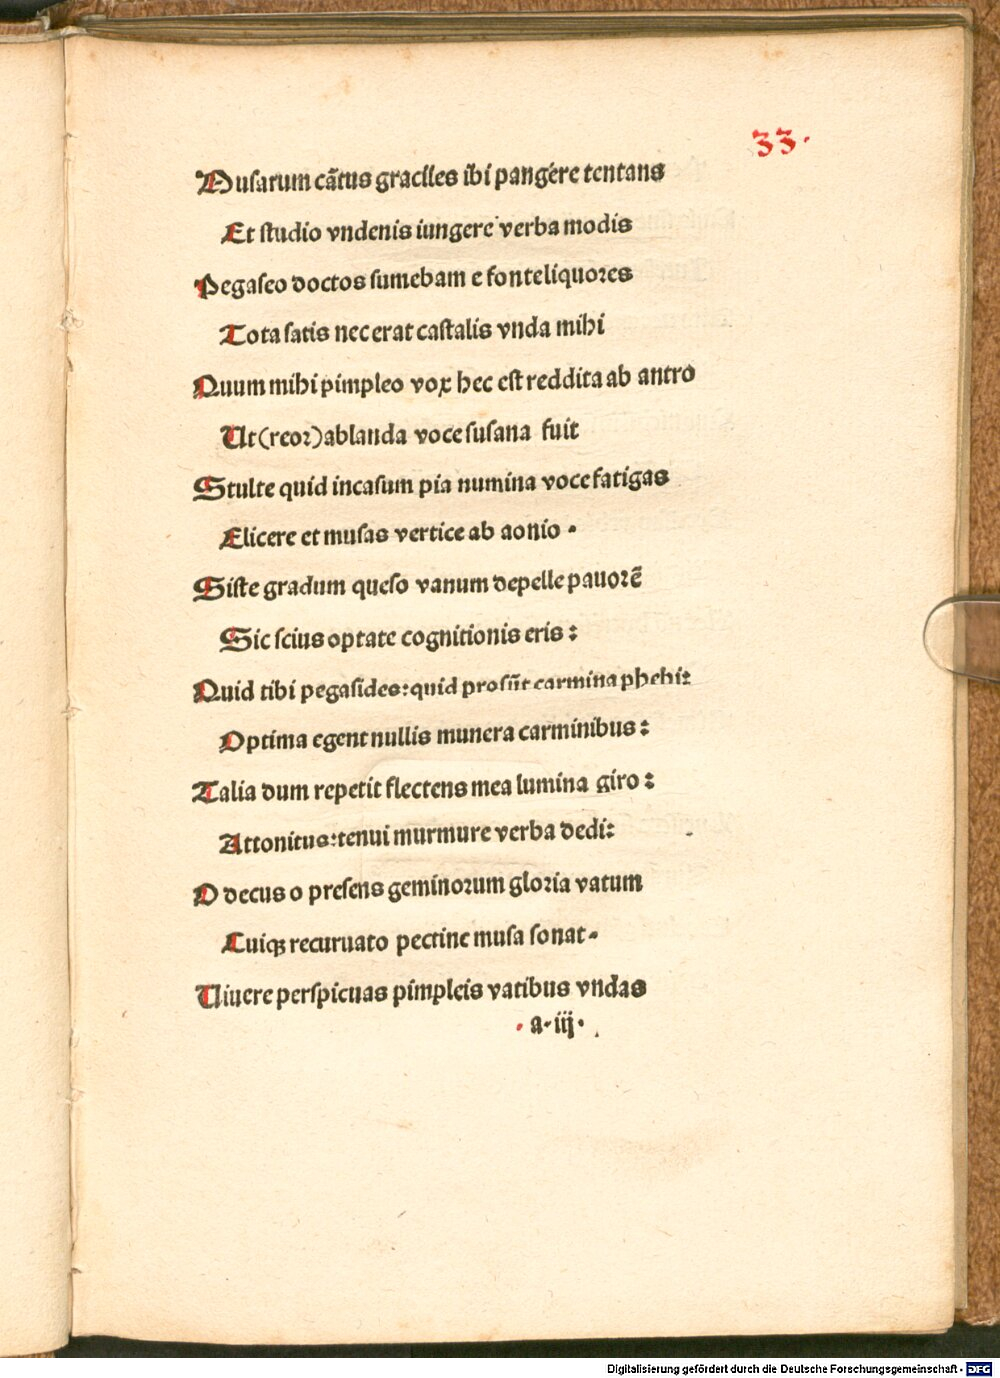 33.
Musarum cãtus graciles ibi pangere tentans
Et studio vndenis iungere verba modis
Pegaseo doctos sumebam e fonteliquores
Tota satis nec erat castalis vnda mihi
Quum mihi pimpleo vox hec est reddita ab antro
Ut (reor) ablanda voce susana fuit
Stulte quid incasum pia numina voce fatigas
Elicere et musas vertice ab aonio .
Siste gradum queso vanum depelle pauorẽ
Sic scius optate cognitionis eris :
Quid tibi pegasides: quid prosũt carmina phebi:
Optima egent nullis munera carminibus :
Talia dum repetit flectens mea lumina giro :
Attonitus: tenui murmure verba dedi:
O decus o presens geminorum gloria vatum
Cuiqꝫ recuruato pectine musa sonat.
Uiuere perspicuas pimpleis vatibus vndas
. a. iij.
Digitalisierung gefördert durch die Deutsche Forschungsgemeinschaft - DFG